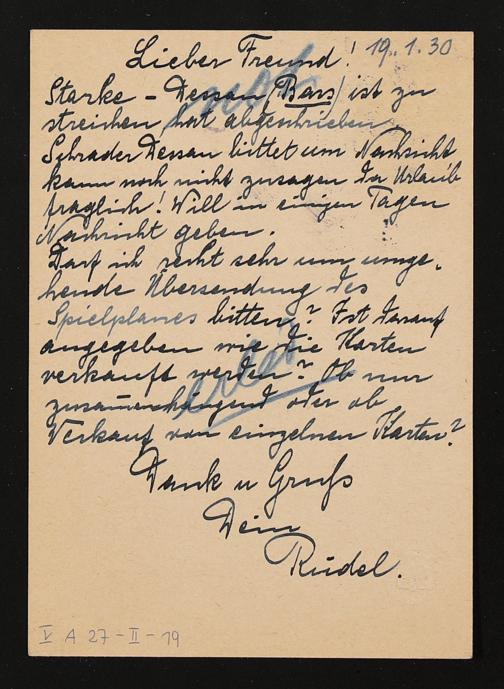 Lieber Freund! 19.1.30
Starke - Dessau (Bass) ist zu
streichen hat abgeschrieben
Schrader Dessau bittet um Nachricht
kann noch nicht zusagen da Urlaub
fraglich! Will in einigen Tagen
Nachricht geben.
Darf ich recht sehr um umge-
hende Übersendung des
Spielplanes bitten? Ist darauf
angegeben wie die Karten
verkauft werden? Ob nur
zusammenhängend oder ob
Verkauf von einzelnen Karten?
Dank u Gruß
Dein
Rüdel.
V A 27-II-19